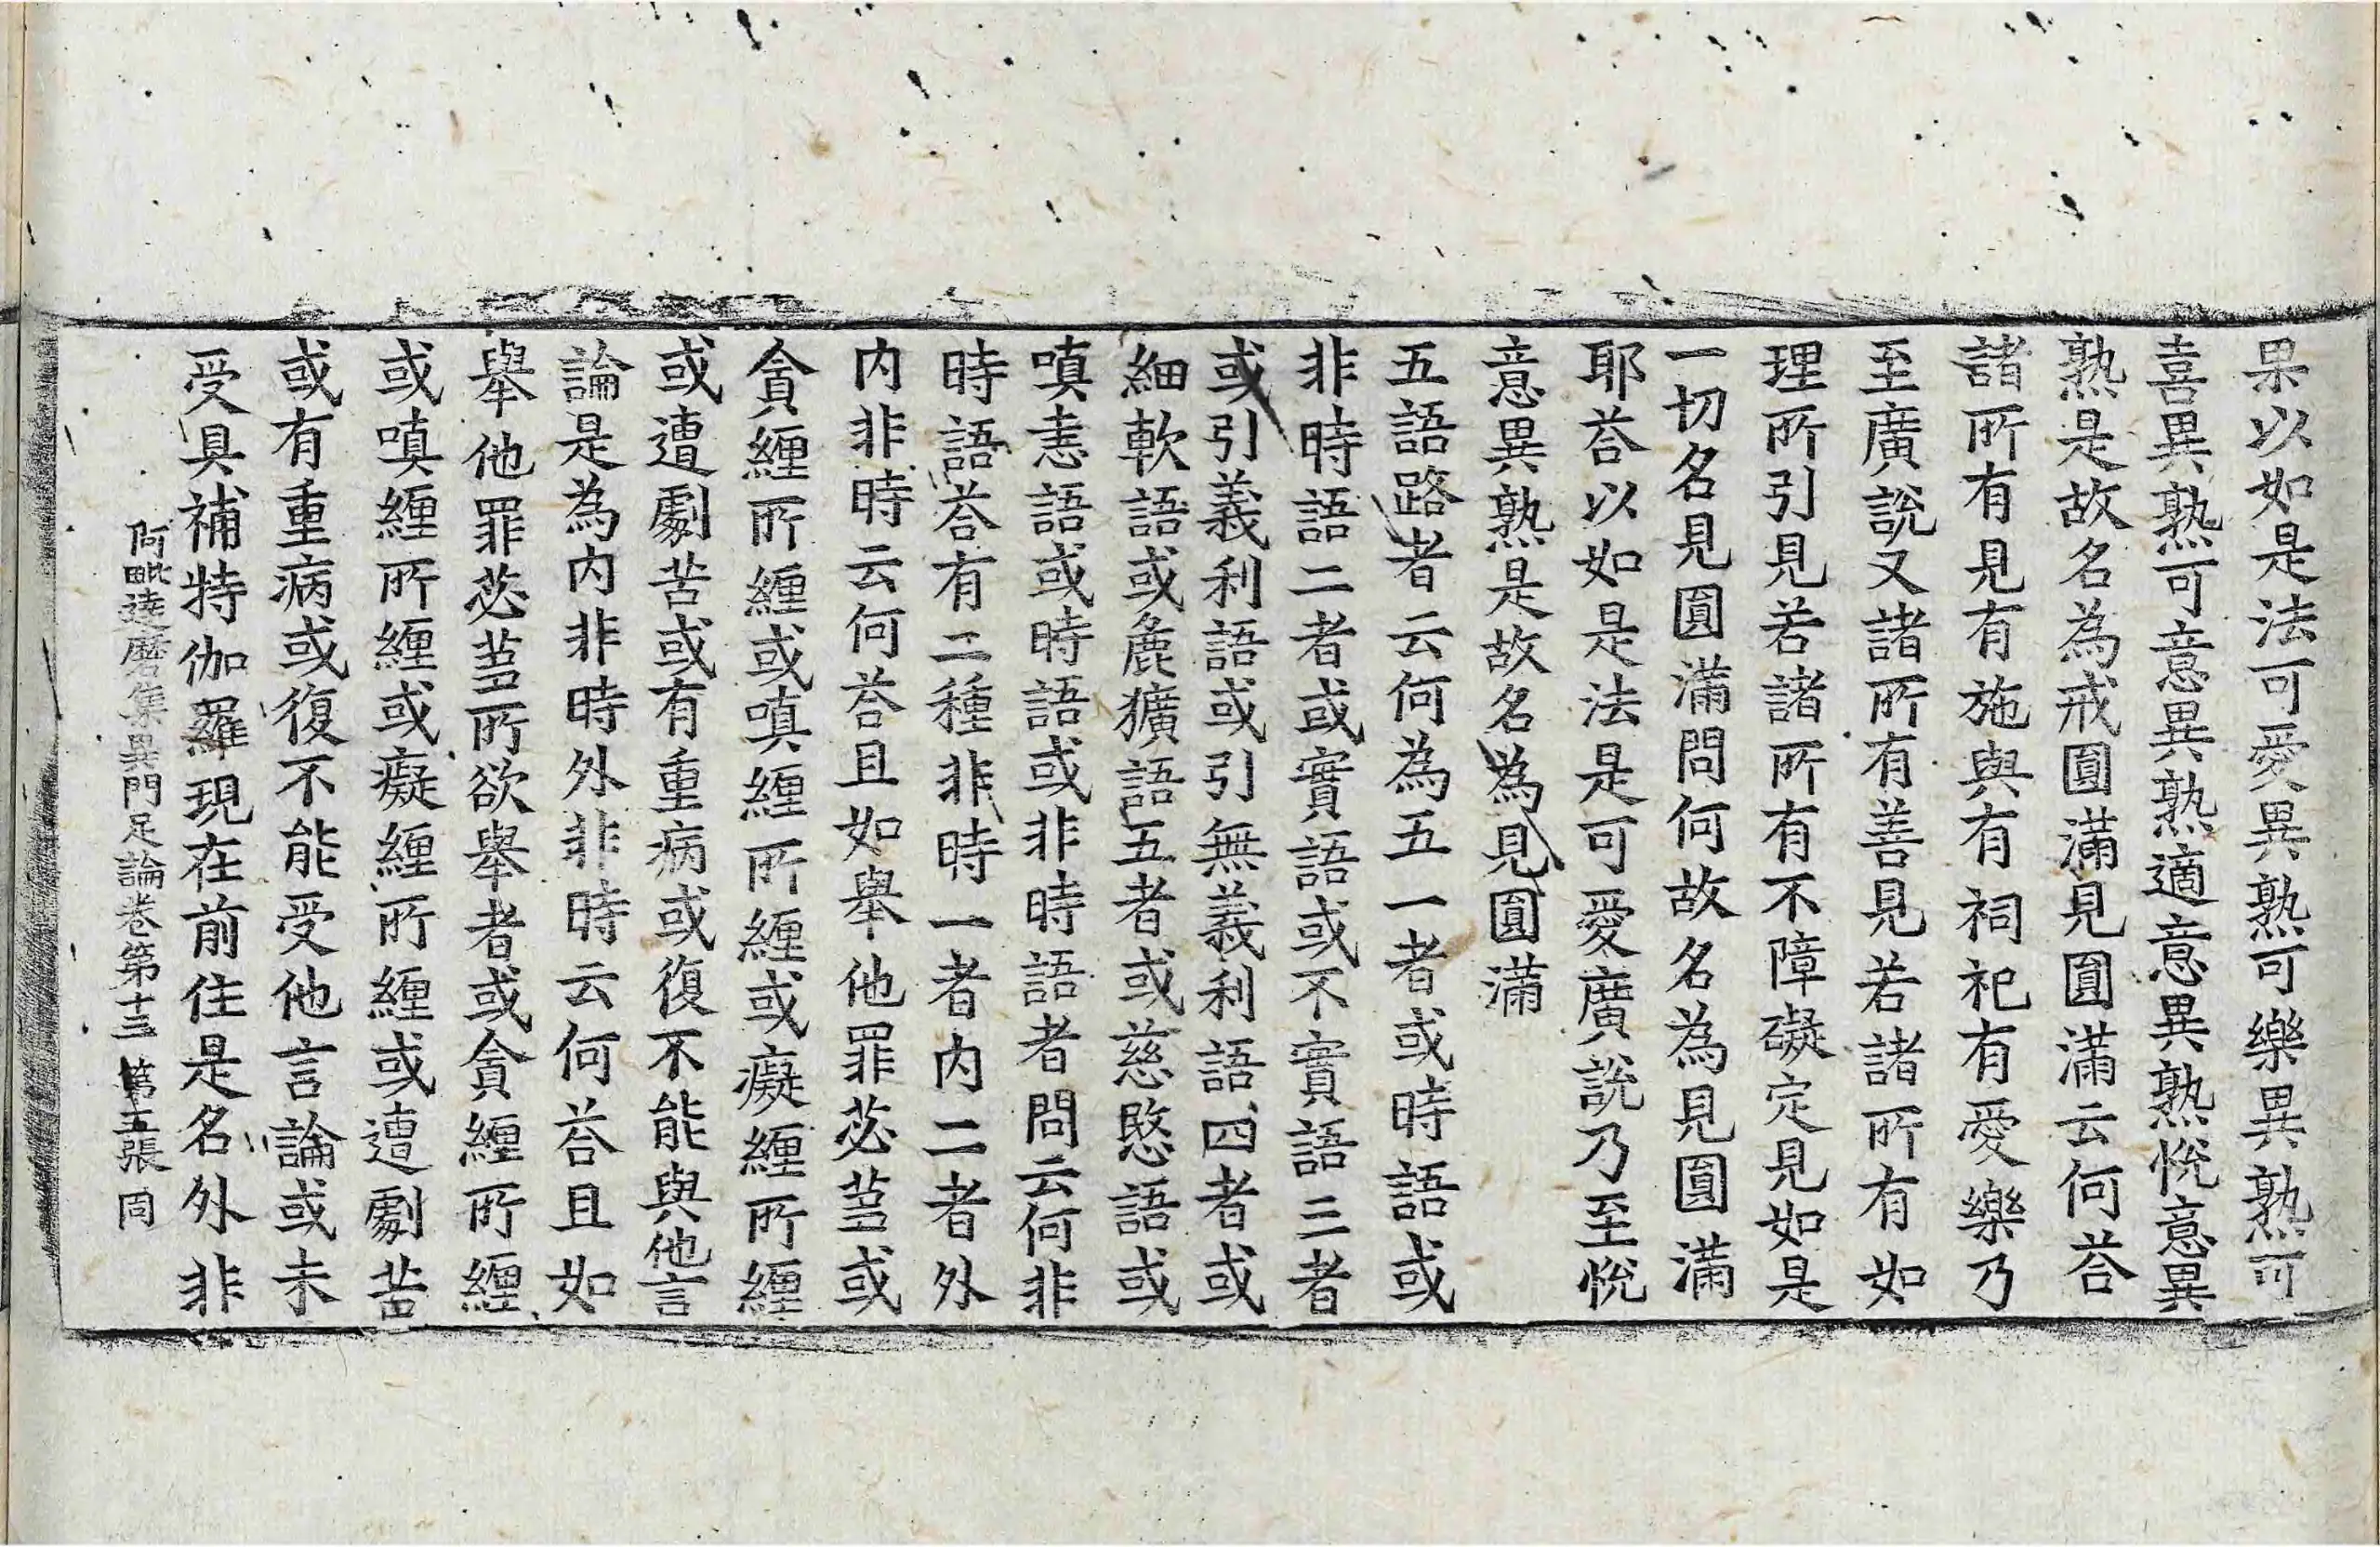 果以如是法可愛異熟可樂異熟可
喜異熟可意異熟適意異熟悅意異
熟是故名為戒圓滿見圓滿云何荅
諸所有見有施與有祠祀有愛樂乃
至廣說又諸所有善見若諸所有如
理所引見若諸所有不障礙定見如是
一切名見圓滿問何故名為見圓滿
耶荅以如是法是可愛廣說乃至悅
意異熟是故名為見圓滿
五語路者云何為五一者或時語或
非時語二者或實語或不實語三者
或引義利語或引無義利語四者或
細軟語或麁獷語五者或慈愍語或
嗔恚語或時語或非時語者問云何非
時語荅有二種非時一者內二者外
內非時云何荅且如舉他罪苾芻或
貪纏所纏或嗔纏所纏或癡纏所纏
或遭劇苦或有重病或復不能與他言
論是為內非時外非時云何荅且如
舉他罪苾芻所欲舉者或貪纏所纏
或嗔纏所纏或癡纏所纏或遭劇苦
或有重病或復不能受他言論或未
受具補特伽羅現在前住是名外非
阿毗達磨集異門足論卷第十三 第五張 同